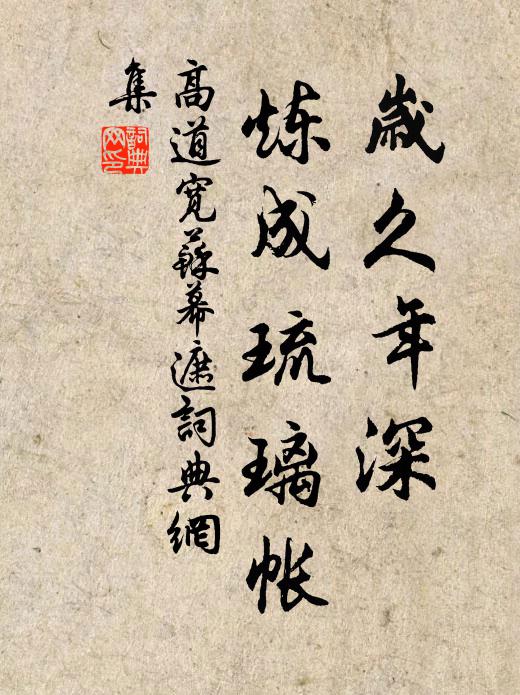 歲久年深
炼成琉璃帐
高道寬蘇幕遮詞典網
集
詞典网印